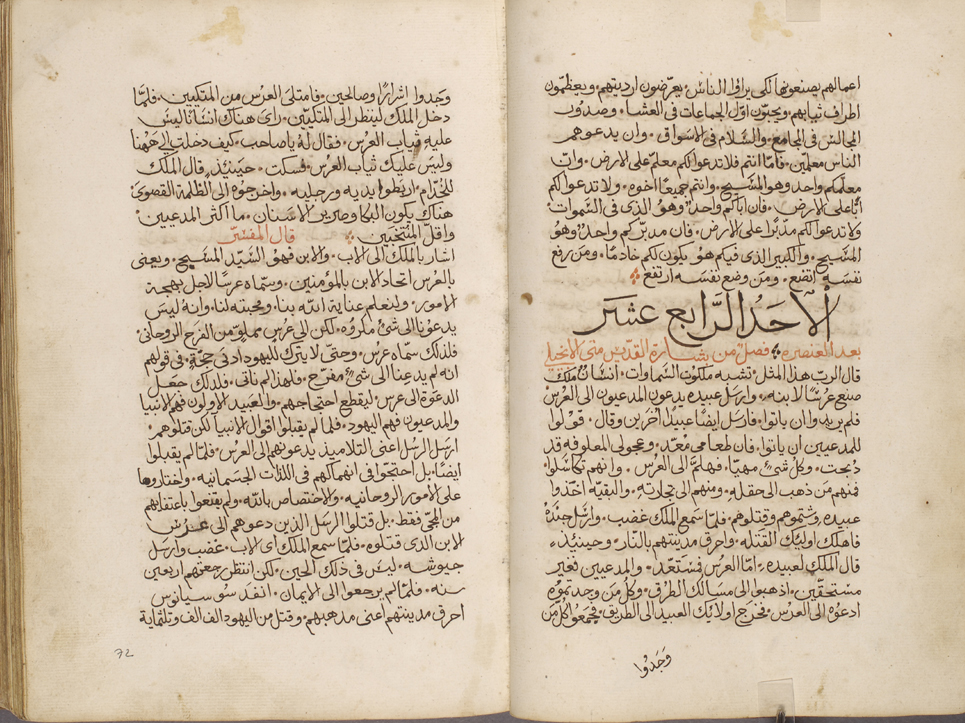 اعمالهم يصنعونها لكى يراؤا الناس. يعرّضون ارديتهم. ويعظّمون
اطراف ثيابهم. ويحبّون اوّل الجماعات فى العشا. وصدور
المجالس فى المجامع. والسّلام فى الاسواق. وان يدعوهم
الناس معلّمين. فامّا انتم فلا تدعوا لكم معلمّ على الارض. وانّ
معلّمكم واحد وهو المسّيح. وانتم جميعًا اخوه. ولا تدعوا لكم
ابًا على الارض. فان اباكم واحد. وهو الذى فى السّموات.
ولا تدعوا لكم مدبّرًا على الارض. فان مدبّركم واحد. وهو
المسّيح. والكبير الذى فيكم هو يكون لكم خادمًا. ومن رفع
نفسه اتضع. ومن وضع نفسه ارتفع
الاحد الرّابع عشر
بعد العنصره فصل من بشارة القدّيس متى الانجيلى
قال الربّ هذا المثل. تشبه ملكوت السّماوات. انسان ملك
صنع عرسًا لابنه. وارسل عبيده يدعون المدعوين الى العرس
فلم يريدوا ان ياتوا. فارسل ايضًا عبيدًا اخرين وقال. قولوا
للمدعيين ان ياتوا. فان طعامى معّد. وعجولى المعلوفه قد
ذبحت. وكل شىء مهيّا. فهلمّا الى العرس. وانهم تكاسلوا.
فمنهم من ذهب الى حقله. ومنهم الى تجارته. والبقيّه اخذوا
عبيده وشتموهم وقتلوهم. فلمّا سمع الملك غضب. وارسل جندهُ
فاهلك اوليك القتله. واحرق مدينتهم بالنّار. وحينيذ
قال الملك لعبيده. امّا العرس فمستعد. والمدعيين فغير
مستحقّين. اذهبوا الى مسالك الطرق. وكل من وجدتموه
ادعوُه الى العرس. فخرج اولايك العبيد الى الطريق. فجمعوا كل من
وَجَدُوا
وجدوا اشرارًا وصالحين. فامتلى العرس من المتكيين. فلمّا
دخل الملك لينظر الى المتكيّن. راى هناك انسَانًا ليس
عليه ثياب العرس. فقال له يا صاحب. كيف دخلت الى ههُنا
وليس عليك ثياب العرس. فسكت. حينيذ قال الملك
للخدّام. اربطوا يديه ورجليه. واخرجوه الى الظلمة القصوى.
هناك يكون البكا وصرير الاسنان. ما اكثر المدعيين.
واقلّ المنتخبين قال المفسّر
اشار بالملك الى الاب. والابن فهو السّيد المسّيح. ويعنى
بالعرس اتحاد الابن بالمؤمنين. وسمّاه عرسًا لاجل بهجة
الامور. ولنعلم عناية الله بنا. ومحبته لنا. وانه ليس
يدعونا الى شىء مكروه. لكن الى عرس مملوّ من الفرح الروحانى.
فلذلك سمّاه عرس. وحتّى لا يترك لليهود ادنى حجّة. فى قولهم
انه لم يدعنا الى شىء مفرّح. فلهذا لم ناتى. فلذلك جعل
الدعوة الى عرس. ليقطع احتجاجهم. والعبيد الاولون فهم الانبيا
والمدعيون فهم اليهود. فلما لم يقبلوا اقوال الانبيا لكن قتلوهم.
ارسل الرسل اعنى التلاميذ يدعونهم الى العرس. فلمّا لم يقبلوا
ايضًا. بل احتجّوا فى انهماكهم فى اللذّات الجسمانيه. واختاروها
على الامور الروحانيه. والاختصاص بالله. ولم يقنعوا باعتفايهم
من المجى فقط. بل قتلوا الرسل الذين دعوهم الى عرس
الابن الذى قتلوه. فلمّا سمع الملك اى الاب. غضب وارسل
جيوشه. ليس فى ذلك الحين. لكن انتظر رجعتهم اربعين
سنه. فلمّا لم يرجعوا الى الايمان. انفد سوسيانوس
احرق مدينتهم اعنى مذهبهم. وقتل من اليهود الف الف وتلثماية
72